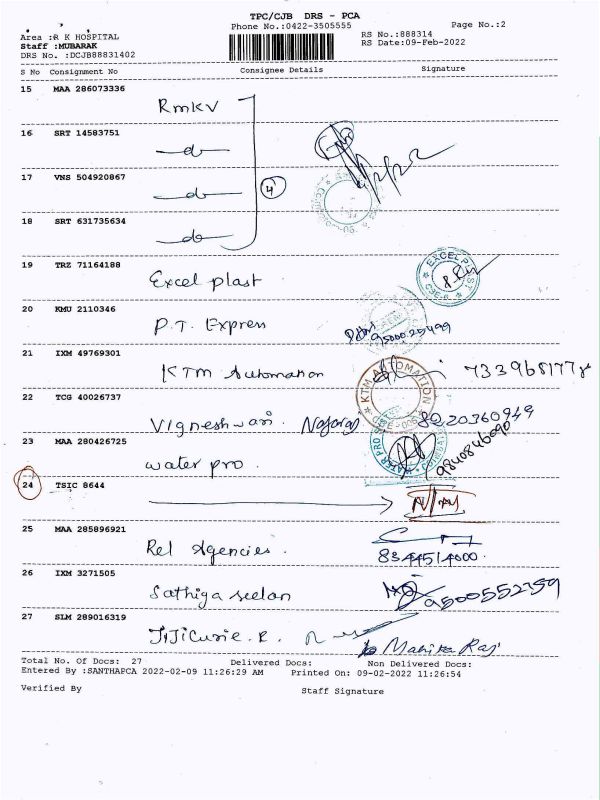 TPC/CJB DRS - PCA
Phone No.:0422-3505555 Page No.:2
Area :R K HOSPITAL RS No.:888314
Staff :MUBARAK RS Date:09-Feb-2022
DRS No. :DCJB88831402
S No Consignment No Consignee Details Signature
15 MAA 286073336
RmKV
16 SRT 14583751
do
17 VNS 504920867
do 4
18 SRT 631735634
do
19 TRZ 71164188
Excel plast
EXCEL PLAST
20 KMU 2110346
P.T. Express
21 IXM 49769301
KTM Automation
KTM AUTOMATION
22 TCG 40026737
Vigneshwari. Nagaraj 8220360949
23 MAA 280426725
water pro. 9840846090
WATER PRO
24 TSIC 8644
25 MAA 285896921
Rel Agencies. 8344514000.
26 IXM 3271505
Sathiga seelan 9500552359
27 SLM 289016319
JiJiCurie.R.
Total No. Of Docs: 27 Delivered Docs: Non Delivered Docs:
Entered By :SANTHAPCA 2022-02-09 11:26:29 AM Printed On: 09-02-2022 11:26:54
Verified By Staff Signature